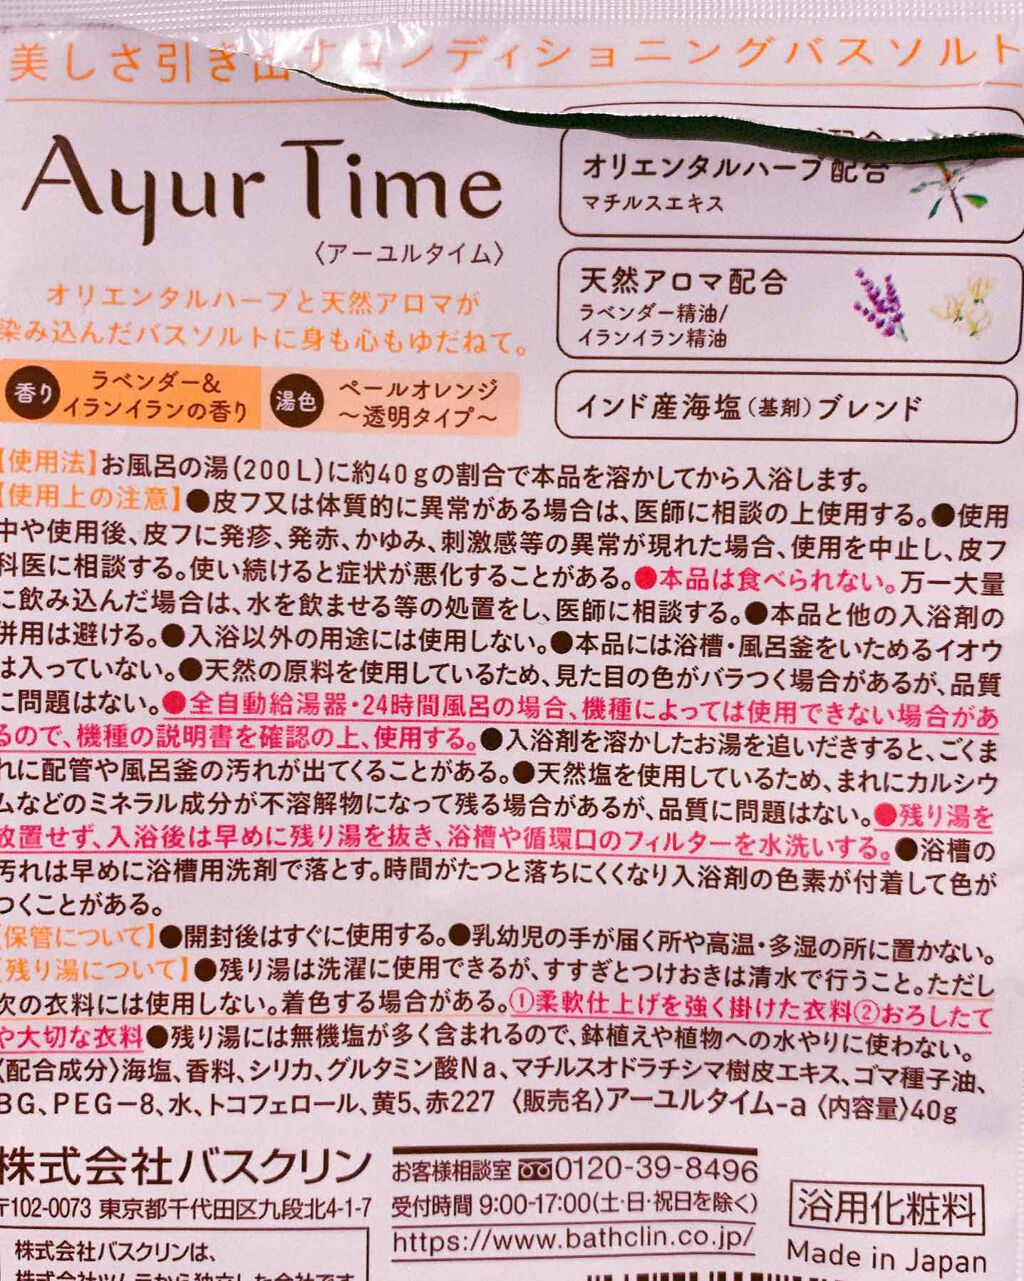 美しさ引き出すコンディショニングバスソルト
Ayur Time
〈アーユルタイム〉
オリエンタルハーブと天然アロマが
染み込んだバスソルトに身も心もゆだねて。
香り ラベンダー&
イランイランの香り
湯色 ペールオレンジ
～透明タイプ～
オリエンタルハーブ配合
マチルスエキス
天然アロマ配合
ラベンダー精油/
イランイラン精油
インド産海塩(基剤)ブレンド
【使用法】お風呂の湯(200L)に約40gの割合で本品を溶かしてから入浴します。
【使用上の注意】●皮フ又は体質的に異常がある場合は、医師に相談の上使用する。●使用
中や使用後、皮フに発疹、発赤、かゆみ、刺激感等の異常が現れた場合、使用を中止し、皮フ
科医に相談する。使い続けると症状が悪化することがある。●本品は食べられない。万一大量
に飲み込んだ場合は、水を飲ませる等の処置をし、医師に相談する。●本品と他の入浴剤の
併用は避ける。●入浴以外の用途には使用しない。●本品には浴槽・風呂釜をいためるイオウ
は入っていない。●天然の原料を使用しているため、見た目の色がバラつく場合があるが、品質
に問題はない。●全自動給湯器・24時間風呂の場合、機種によっては使用できない場合があ
るので、機種の説明書を確認の上、使用する。●入浴剤を溶かしたお湯を追いだきすると、ごくま
れに配管や風呂釜の汚れが出てくることがある。●天然塩を使用しているため、まれにカルシウ
ムなどのミネラル成分が不溶解物になって残る場合があるが、品質に問題はない。●残り湯を
放置せず、入浴後は早めに残り湯を抜き、浴槽や循環口のフィルターを水洗いする。●浴槽の
汚れは早めに浴槽用洗剤で落とす。時間がたつと落ちにくくなり入浴剤の色素が付着して色が
つくことがある。
【保管について】●開封後はすぐに使用する。●乳幼児の手が届く所や高温・多湿の所に置かない。
【残り湯について】●残り湯は洗濯に使用できるが、すすぎとつけおきは清水で行うこと。ただし
次の衣料には使用しない。着色する場合がある。①柔軟仕上げを強く掛けた衣料②おろしたて
や大切な衣料●残り湯には無機塩が多く含まれるので、鉢植えや植物への水やりに使わない。
〈配合成分〉海塩、香料、シリカ、グルタミン酸Na、マチルスオドラチシマ樹皮エキス、ゴマ種子油、
BG、PEG－8、水、トコフェロール、黄5、赤227 〈販売名〉アーユルタイム-a 〈内容量〉40g
株式会社バスクリン
〒102-0073 東京都千代田区九段北4-1-7
株式会社バスクリンは、
株式会社ツムラから独立した会社です
お客様相談室 0120-39-8496
受付時間 9:00-17:00(土・日・祝日を除く)
https://www.bathclin.co.jp/
浴用化粧料
Made in Japan